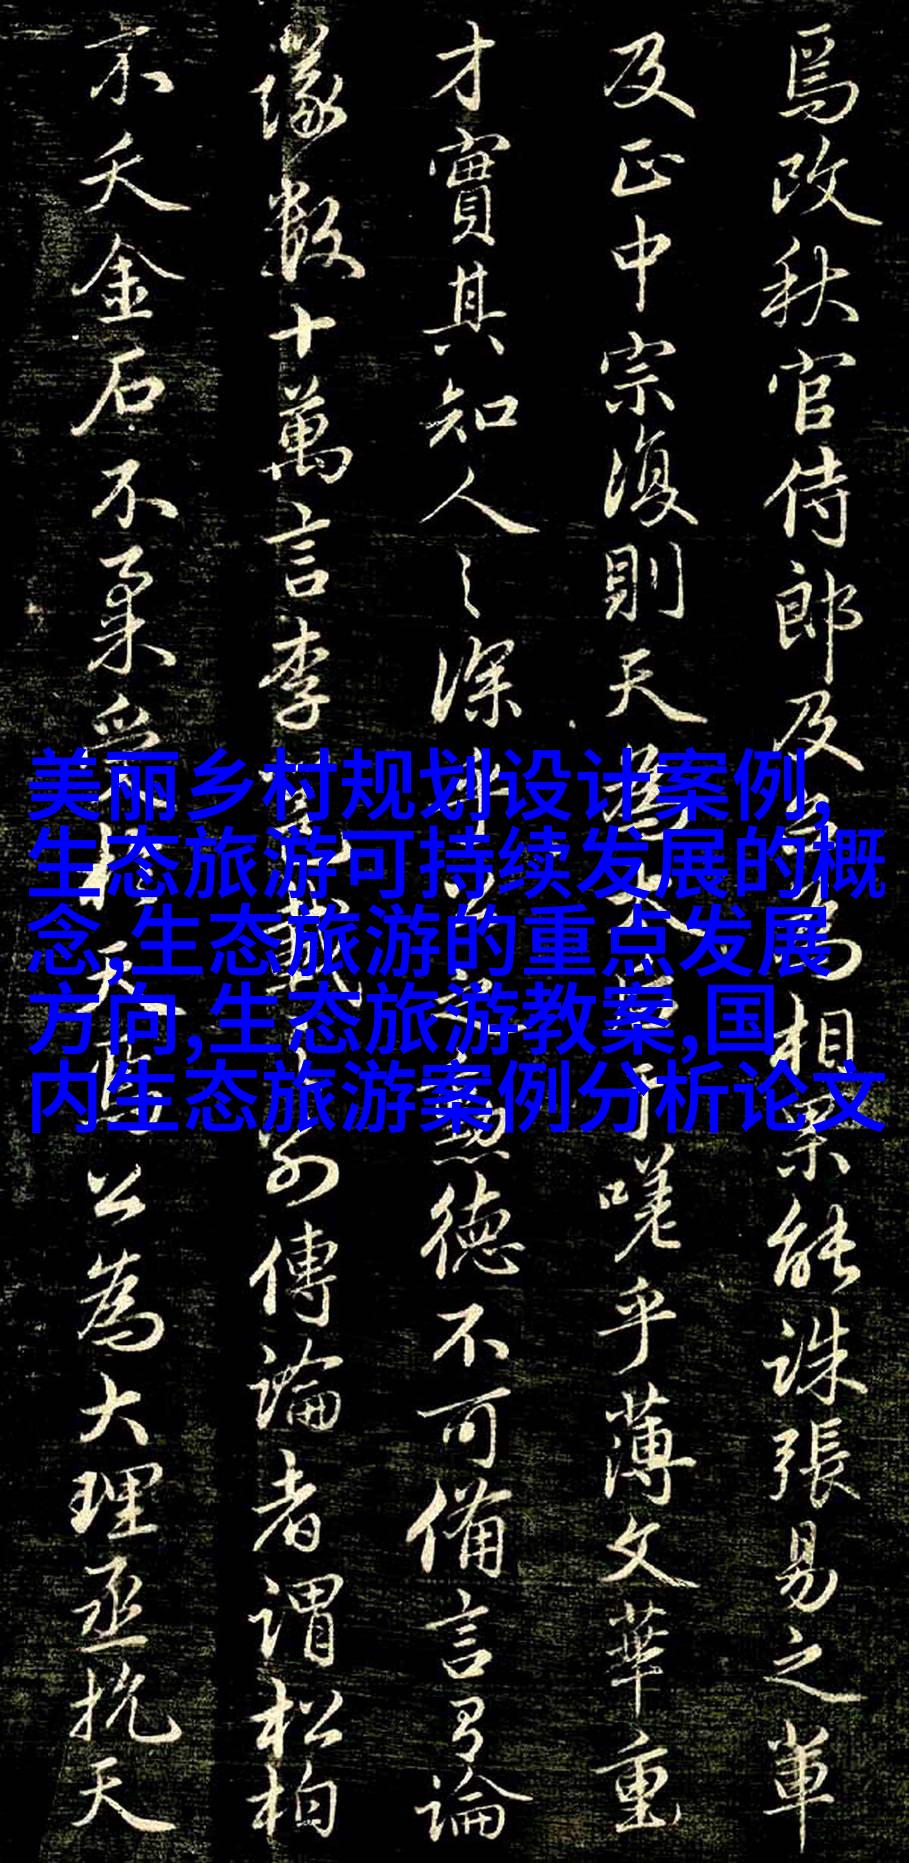 焉改秋官侍郎及為相果能誅張易之輩
及正中宗復則天為嗟乎薄文華重
才實其知人之深德不可備言有論
議數十萬言李載別傳論者謂松柏
不夭金石不柔天焉公為大理丞抗天
美丽乡村规划设计案例,
生态旅游可持续发展的概
念,生态旅游的重点发展
方向,生态旅游教案,国
内生态旅游案例分析论文